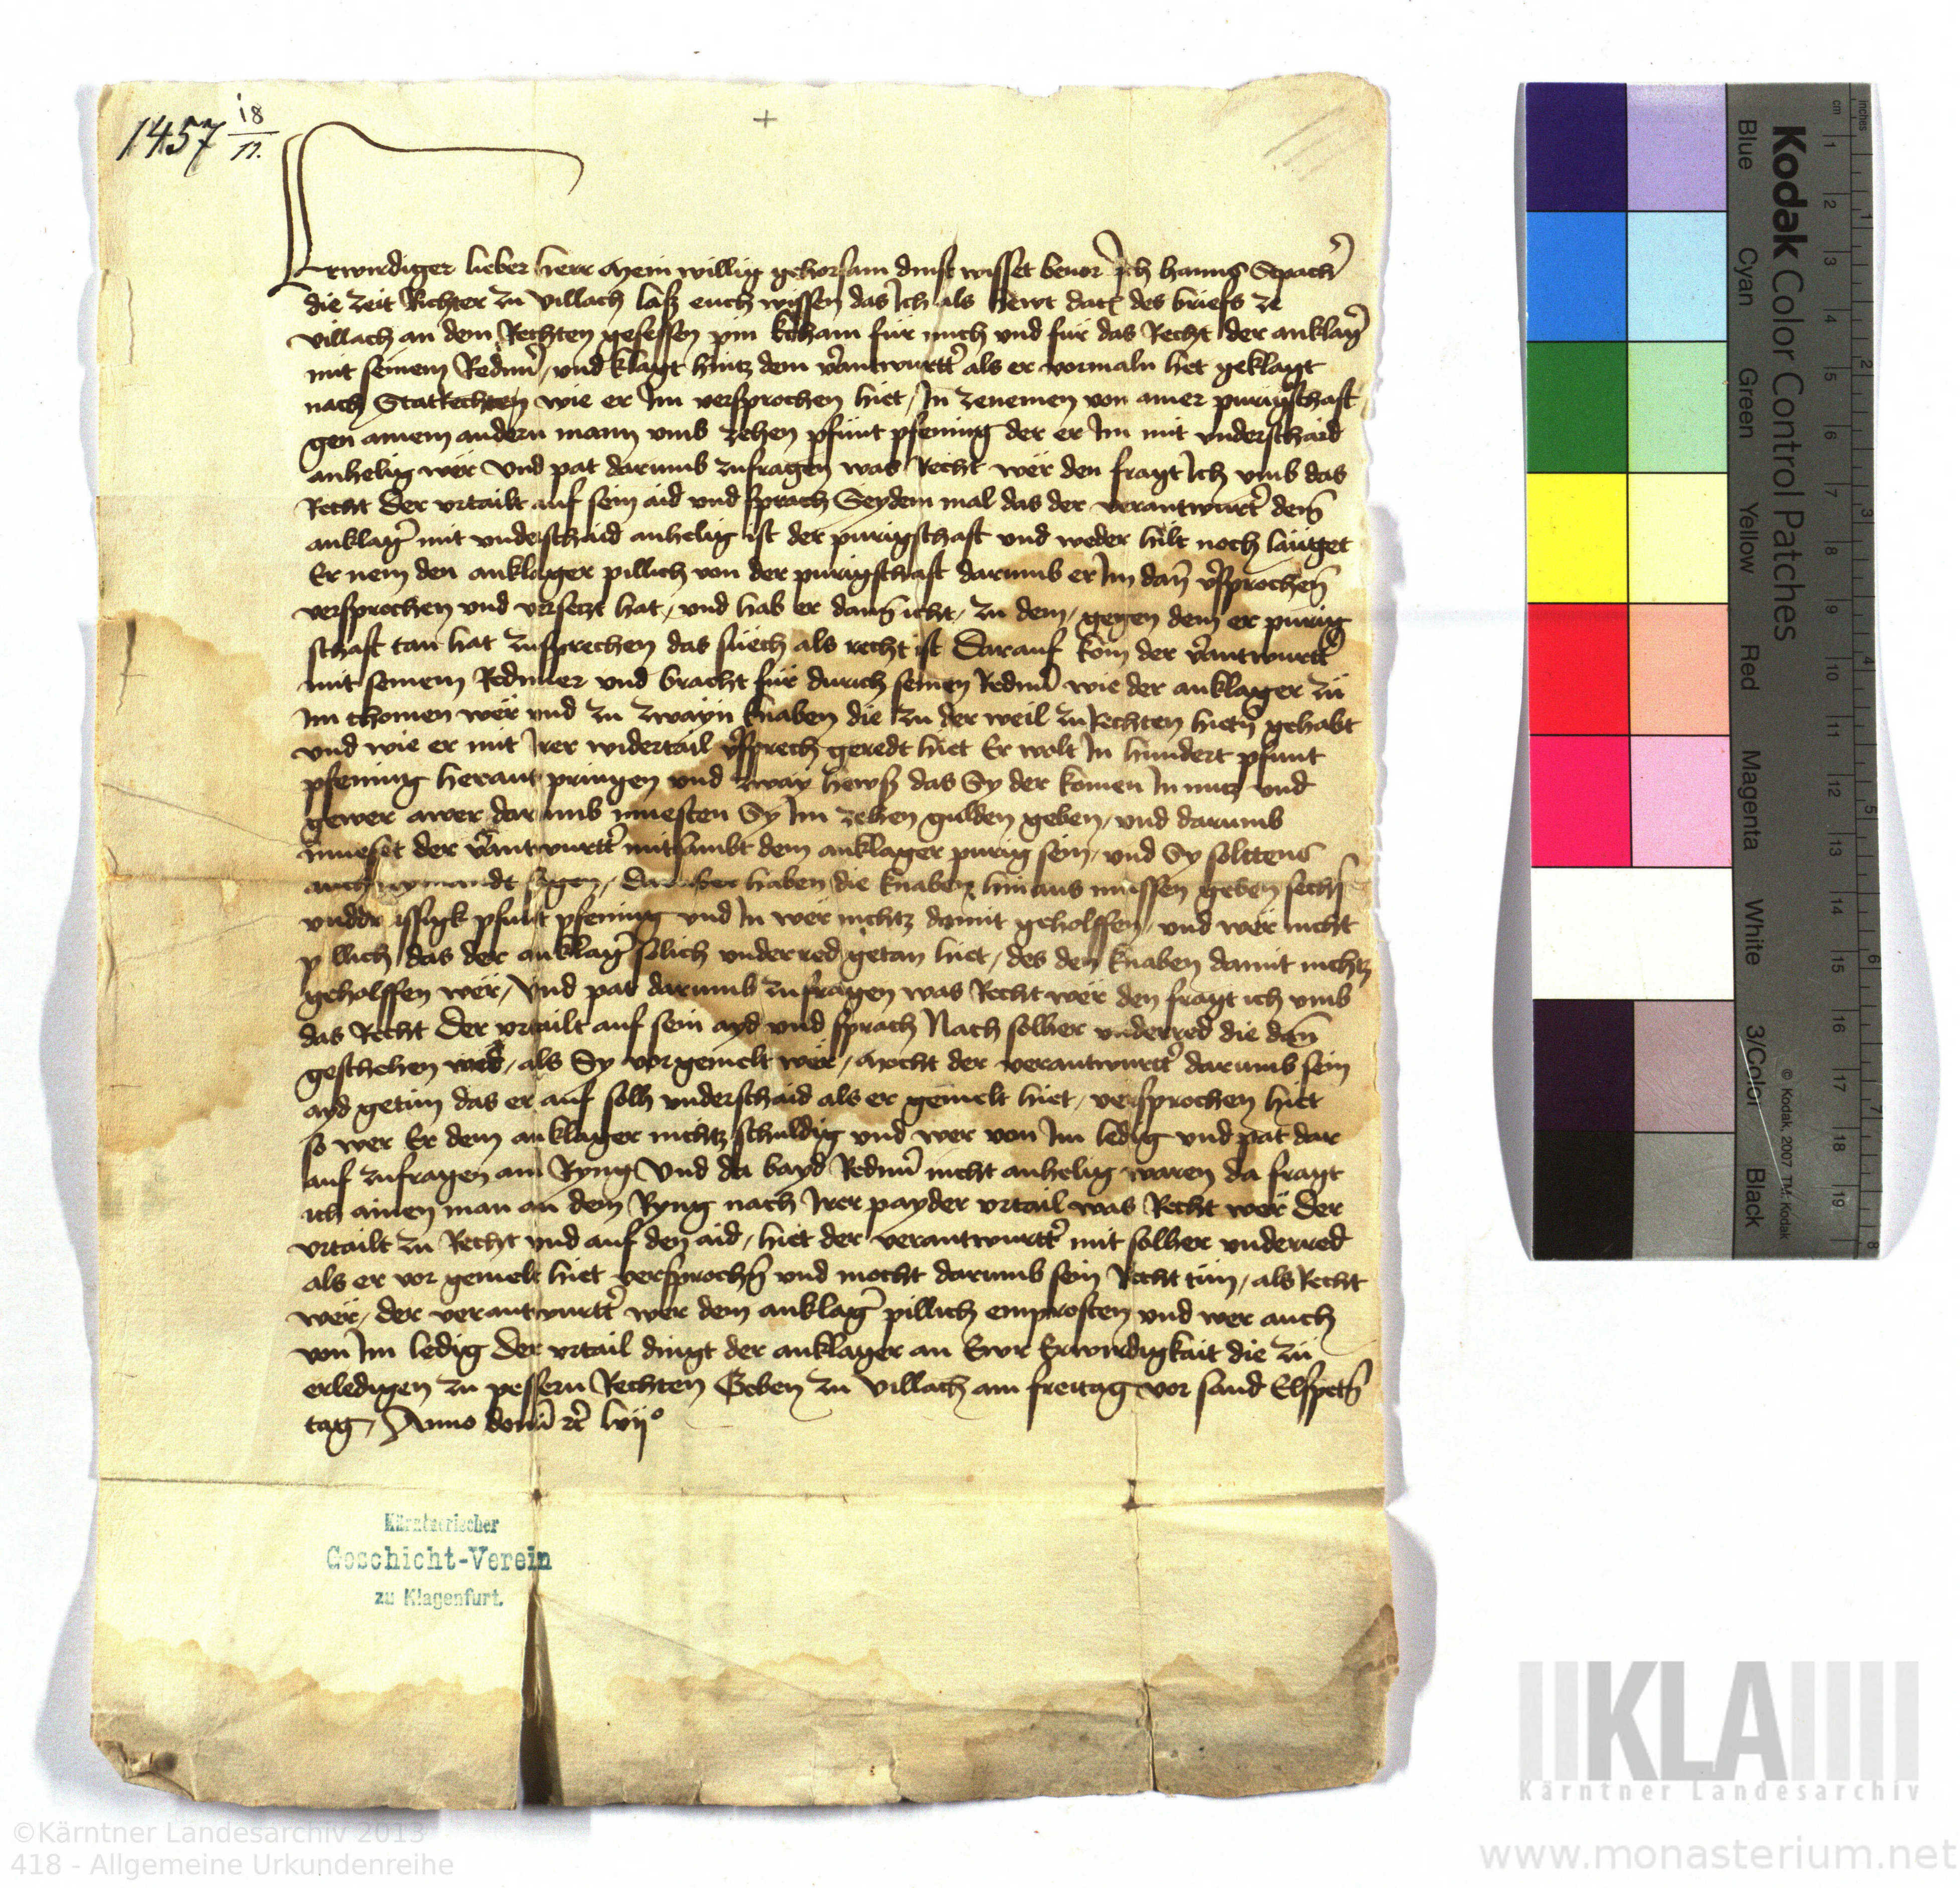 1457 18/11.
Erwirdiger lieber herr Mein willig gehorsam dinst wisset beuor Ich hanns
die zeit Richter zu villach lasz euch wissen das Ich als hewt dat des briefs ze
villach an dem Rechten gesessen pin kcham für mich und für das Recht der anklag̉
mit seinem Redn̄ und klagt hintz dem v̉antwurtt̉ als er vormaln het geklagt
nach Statrechten wie er Im versprochen hiet In zenemen von ainer purigschaft
gen ainem andern mann vmb zehen pfunt pfening der er Im mit vnderschaid
anhelig wër Vnd pat darumb zufragen was Recht wër den fragt Ich vmb das
Recht Der vrtailt auf sein aid und sprach Seydem mal das der verantwurt̉ dem̄
anklag̉ mit vnderschaid anhelig ist der purigschaft und weder hilt noch lauget
Er nem den anklager pillich von der purigschaft darumb er Im dan̄ v̉sprochen̄
versprochen und versetzt hat, und hab er dann̄ icht, zu dem, gegen dem er purig
schaft tan hat zusprechen das süech als recht ist Darauf kom der v̉antwurtt̉
mit seinem Redner und bracht für durich seinen Redn̄ wie der anklager zü
Im chomen wër und zu zwayn knaben die zu der weil zu Rechten hietn̄ gehabt
und wie er mit Irer widertail v̉sprech geredt hiet Er wolt In hundert pfunt
pfening heraus pringen und zway hewsz das Sy der komen In nutz und
gewer awer darumb muesten Sy Im zehen gulden geben, und darumb
muest der v̉antwurtt̉ mitsambt dem anklager purig sein, und Sy solttens
auch nymandt sagen, Darüber haben die knaben hinaus müssen geben sechs
unddreissigk pfunt pfening und In wër nichtz damit geholffen, und wër nicht
pillich das der anklag̉ solich underred getan hiet, des den knaben damit nichtz
geholffen wër, Vnd pat darumb zufragen was Recht wër den fragt ich vmb
das Recht Der vrtailt auf sein ayd und sprach Nach solher underred die dan̄
geschehen wër, als Sy vorgemelt wër, Mocht der verantwurtt̉ darumb sein
ayd getün das er auf solh underschaid als er gemelt hiet, versprochen hiet
so wer Er dem anklager nichtz schuldig und wer von Im ledig und pat dar
auf zufragen am Ryng Vnd da bayd Redn̄ nicht anhelig waren da fragt
ich ainen man an dem Ryng nach Irer payder vrtail was Recht wër Der
vrtailt zu Recht und auf den aid, hiet der verantwurtt̉ mit solher underred
als er vor gemelt hiet versprochn̄ und mocht darumb sein Recht tün, als Recht
wër, der verantwurtt̉ wër dem anklag̉ pillich emprosten und wer auch
von Im ledig Der vrtail dingt der anklager an Ewr Erwirdigkait die zü
erledigen zu pessern Rechten Geben zu villach am freitag vor sand Elspetn̄
tag, Anno domī zc̄ lvij°
Kärntnerischer
Geschicht-Verein
zu Klagenfurt.
Kodak Color Control Patches
Blue Cyan Green Yellow Red Magenta White 3/Color Black
© Kodak, 2007 TM: Kodak
inches 1 2 3 4 5 6 7 8
cm 1 2 3 4 5 6 7 8 9 10 11 12 13 14 15 16 17 18 19
KLA
Kärntner Landesarchiv
©Kärntner Landesarchiv 2013
418 - Allgemeine Urkundenreihe
www.monasterium.net